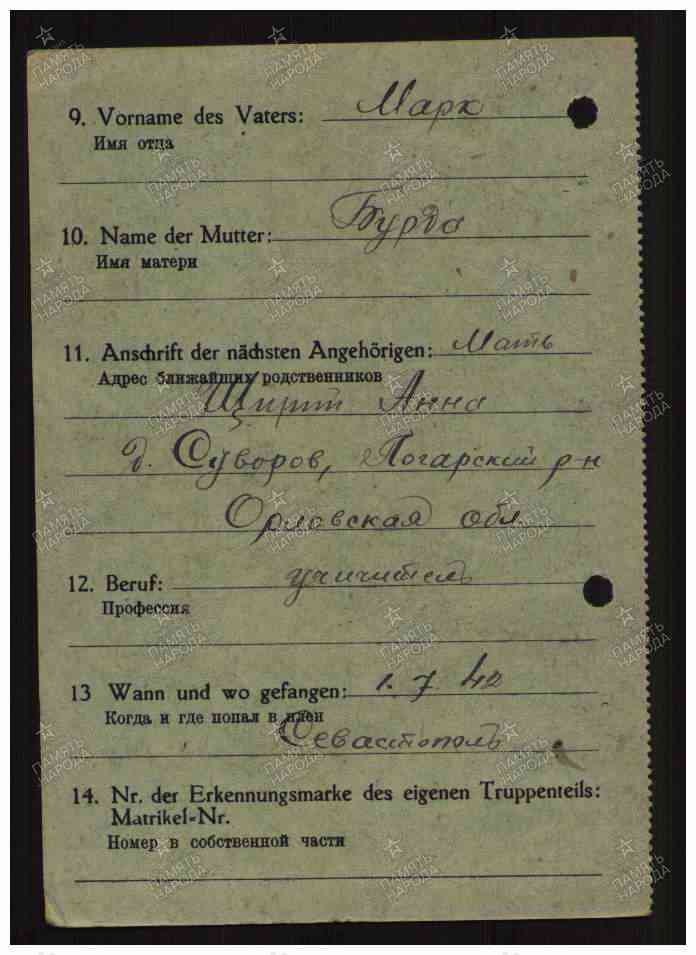 9. Vorname des Vaters: Марк
Имя отца
10. Name der Mutter: Бурда
Имя матери
11. Anschrift der nächsten Angehörigen: Мать
Адрес ближайших родственников
Анна
д. Суворов, Погарский р-н
Орловская обл.
12. Beruf: учичитель
Профессия
13 Wann und wo gefangen: 1. 7. 42
Когда и где попал в плен
Севастополь
14. Nr. der Erkennungsmarke des eigenen Truppenteils:
Matrikel-Nr.
Номер в собственной части
ПАМЯТЬ
НАРОДА